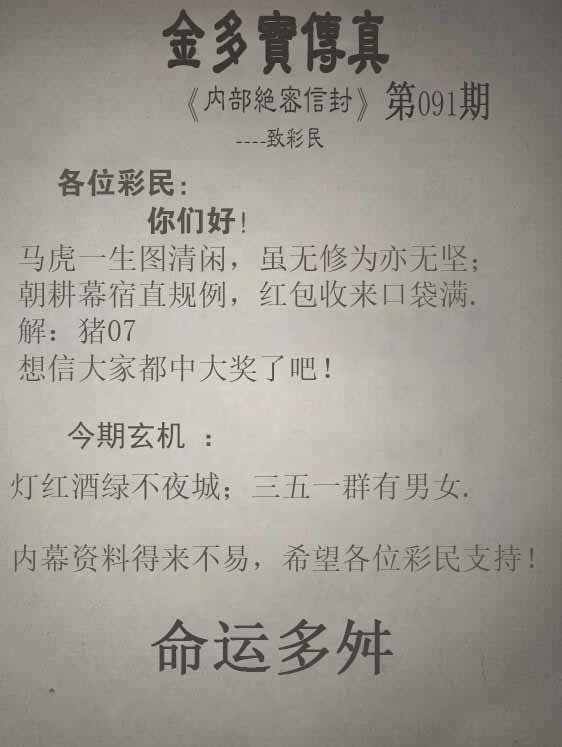 金多寶傳真
《内部絶密信封》第091期
----致彩民
各位彩民:
你们好!
马虎一生图清闲，虽无修为亦无坚;
朝耕幕宿直规例，红包收来口袋满.
解：猪07
想信大家都中大奖了吧!
今期玄机 ：
灯红酒绿不夜城；三五一群有男女.
内幕资料得来不易，希望各位彩民支持!
命运多舛